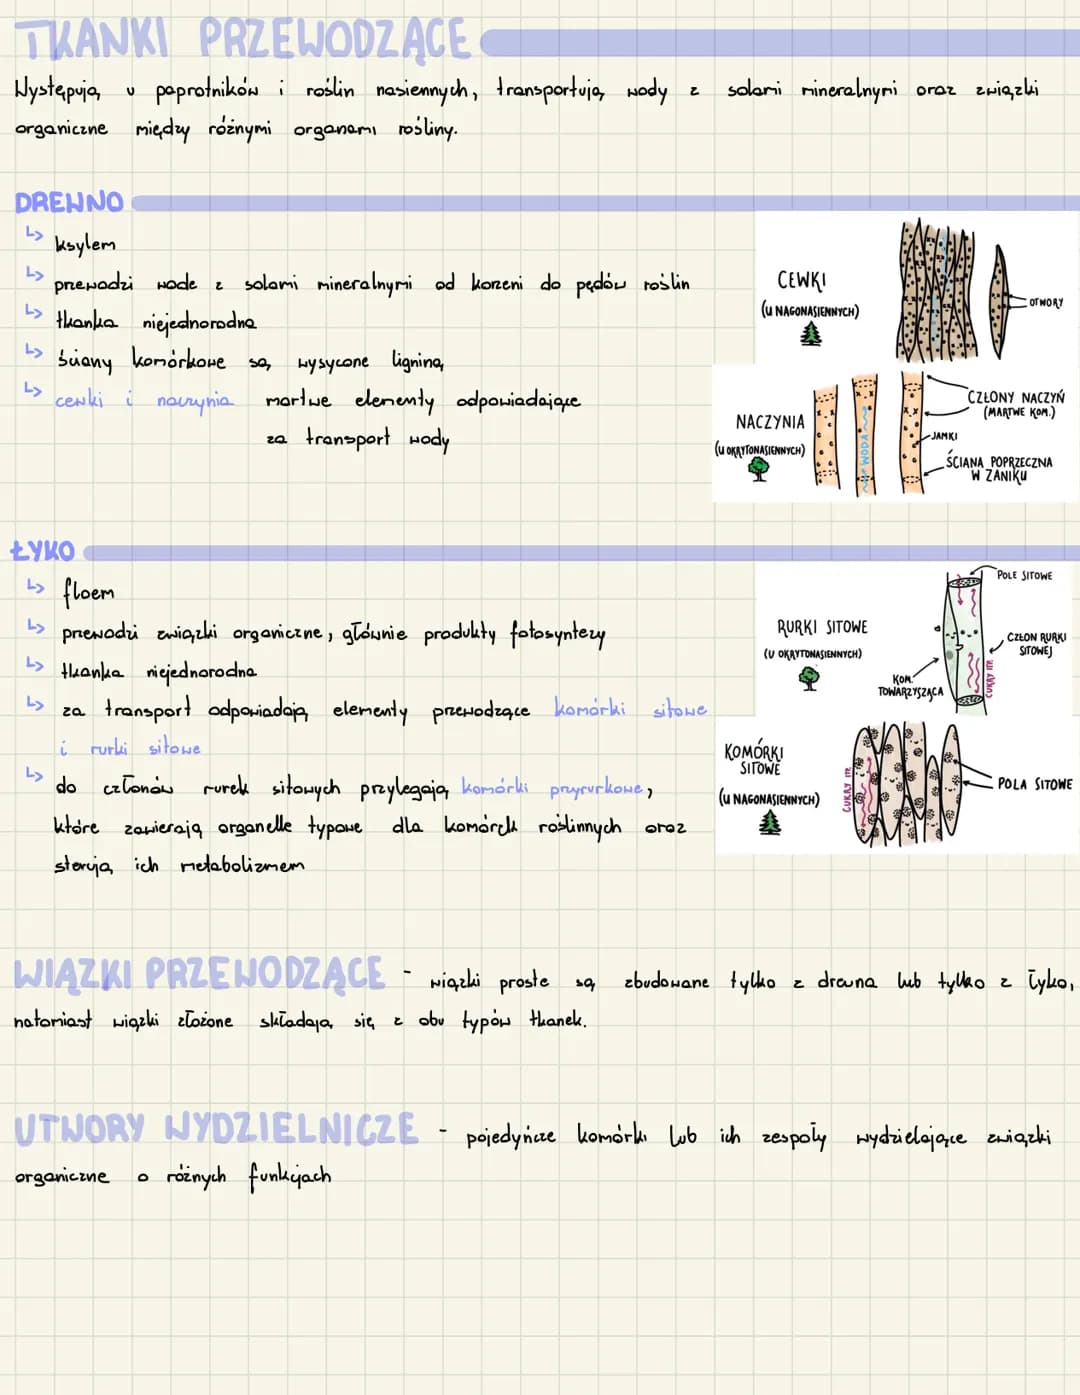 TKANKI PRZEWODZĄCE
Występują u paprotników i roślin nasiennych, transportują wody z solami mineralnymi oraz związki
organiczne między różnymi organami rośliny.
DREWNO
↳ ksylem
↳ przewodzi wode z solami mineralnymi od korzeni do pędów roślin
↳ tkanka niejednorodna
↳ ściany komórkowe są wysycone ligniną
↳ cewki i naczynia martwe elementy odpowiadające
za transport wody
CEWKI
(U NAGONASIENNYCH)
OTWORY
NACZYNIA
(U OKRYTONASIENNYCH)
WODA
CZŁONY NACZYŃ
(MARTWE KOM.)
JAMKI
ŚCIANA POPRZECZNA
W ZANIKU
ŁYKO
↳ floem
↳ przewodzi związki organiczne, głównie produkty fotosyntezy
↳ tkanka niejednorodna
↳ za transport odpowiadają elementy przewodzące komórki sitowe
i rurki sitowe
↳ do członów rurek sitowych przylegają komórki przyrurkowe,
które zawierają organelle typowe dla komórek roślinnych oraz
sterują ich metabolizmem
RURKI SITOWE
(U OKRYTONASIENNYCH)
POLE SITOWE
CZŁON RURKI
SITOWEJ
KOM.
TOWARZYSZĄCA
CUKRY ITP.
KOMÓRKI
SITOWE
(U NAGONASIENNYCH)
CUKRY ITP.
POLA SITOWE
WIĄZKI PRZEWODZĄCE - wiązki proste są zbudowane tylko z drewna lub tylko z łyko,
natomiast wiązki złożone składają się z obu typów tkanek.
UTWORY WYDZIELNICZE - pojedyńcze komórki lub ich zespoły wydzielające związki
organiczne o różnych funkcjach